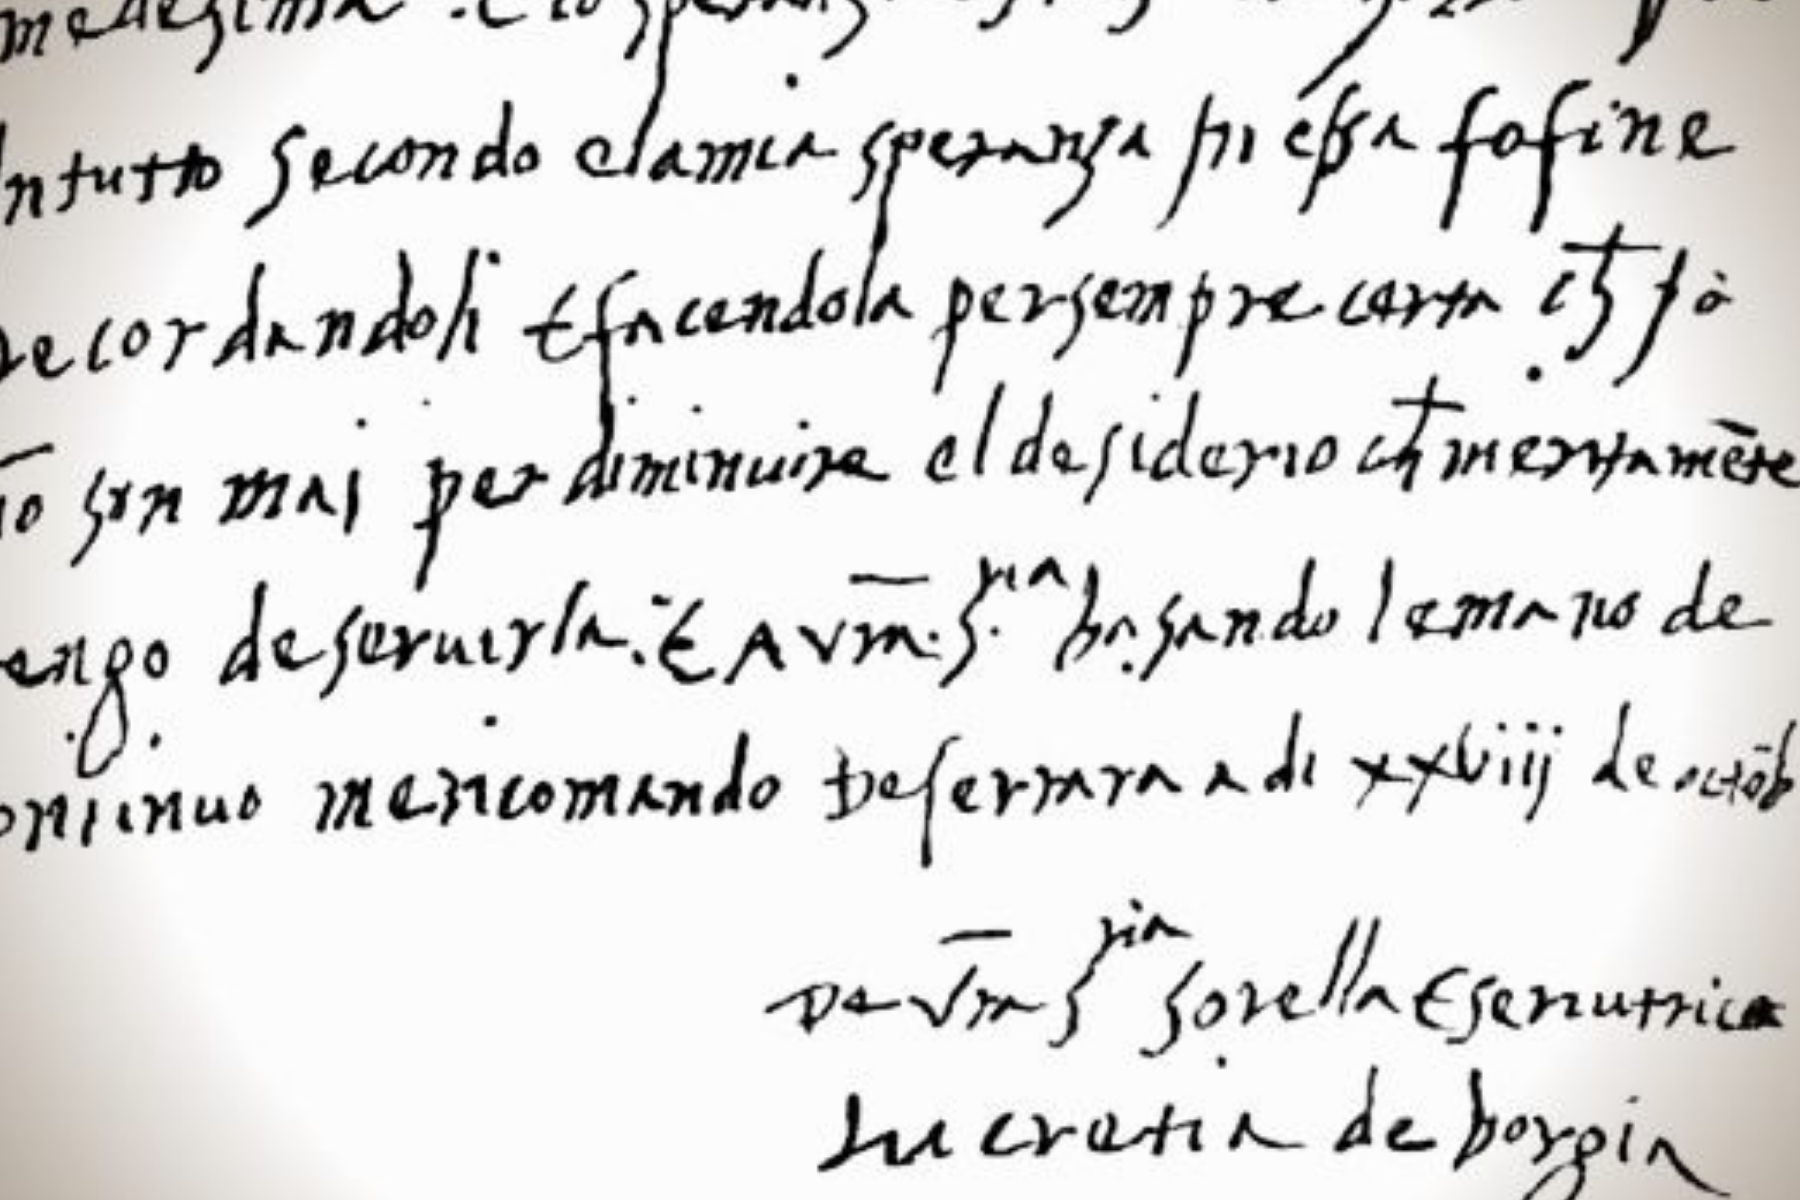 medesima . E io
Intutto secondo elamia speranza pri essa fosine
recordandoli E facendola persempre certa ch̄ p
io son mai per diminuire el desiderio ch̄ meritamēte
engo de seruirla. E A vr̄a. S.ria basando lemano de
ontinuo mericomando De ferrara a di xxviiij de octōb
De vr̄a S ria Sorella E seruitrice
Lucretia de borgia